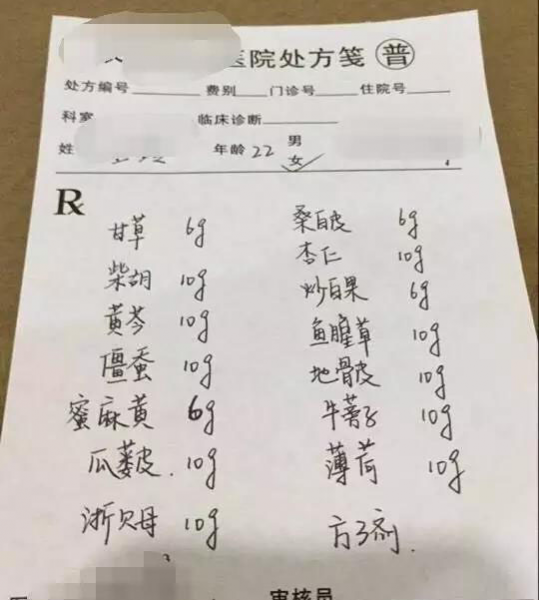 医院处方笺 普
处方编号 费别 门诊号 住院号
科室 临床诊断
姓 年龄22 男
女✓
R
甘草 6g 桑白皮 6g
柴胡 10g 杏仁 10g
黄芩 10g 炒白果 6g
僵蚕 10g 鱼腥草 10g
蜜麻黄 6g 地骨皮 10g
瓜蒌皮 10g 牛蒡子 10g
浙贝母 10g 薄荷 10g
审核员